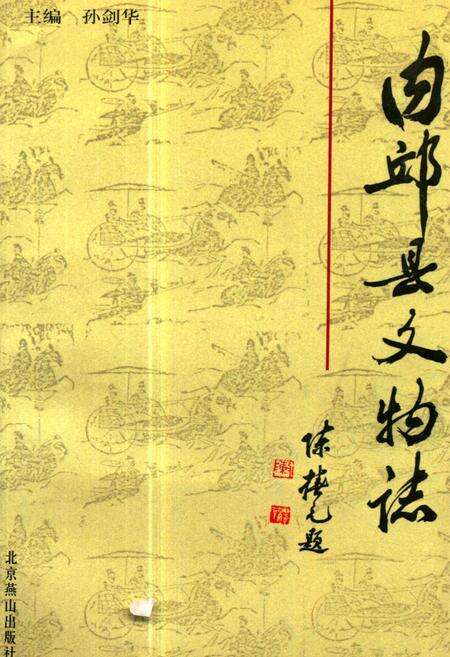 主编 孙剑华
内邱县文物志
陈桂元题
北京燕山出版社